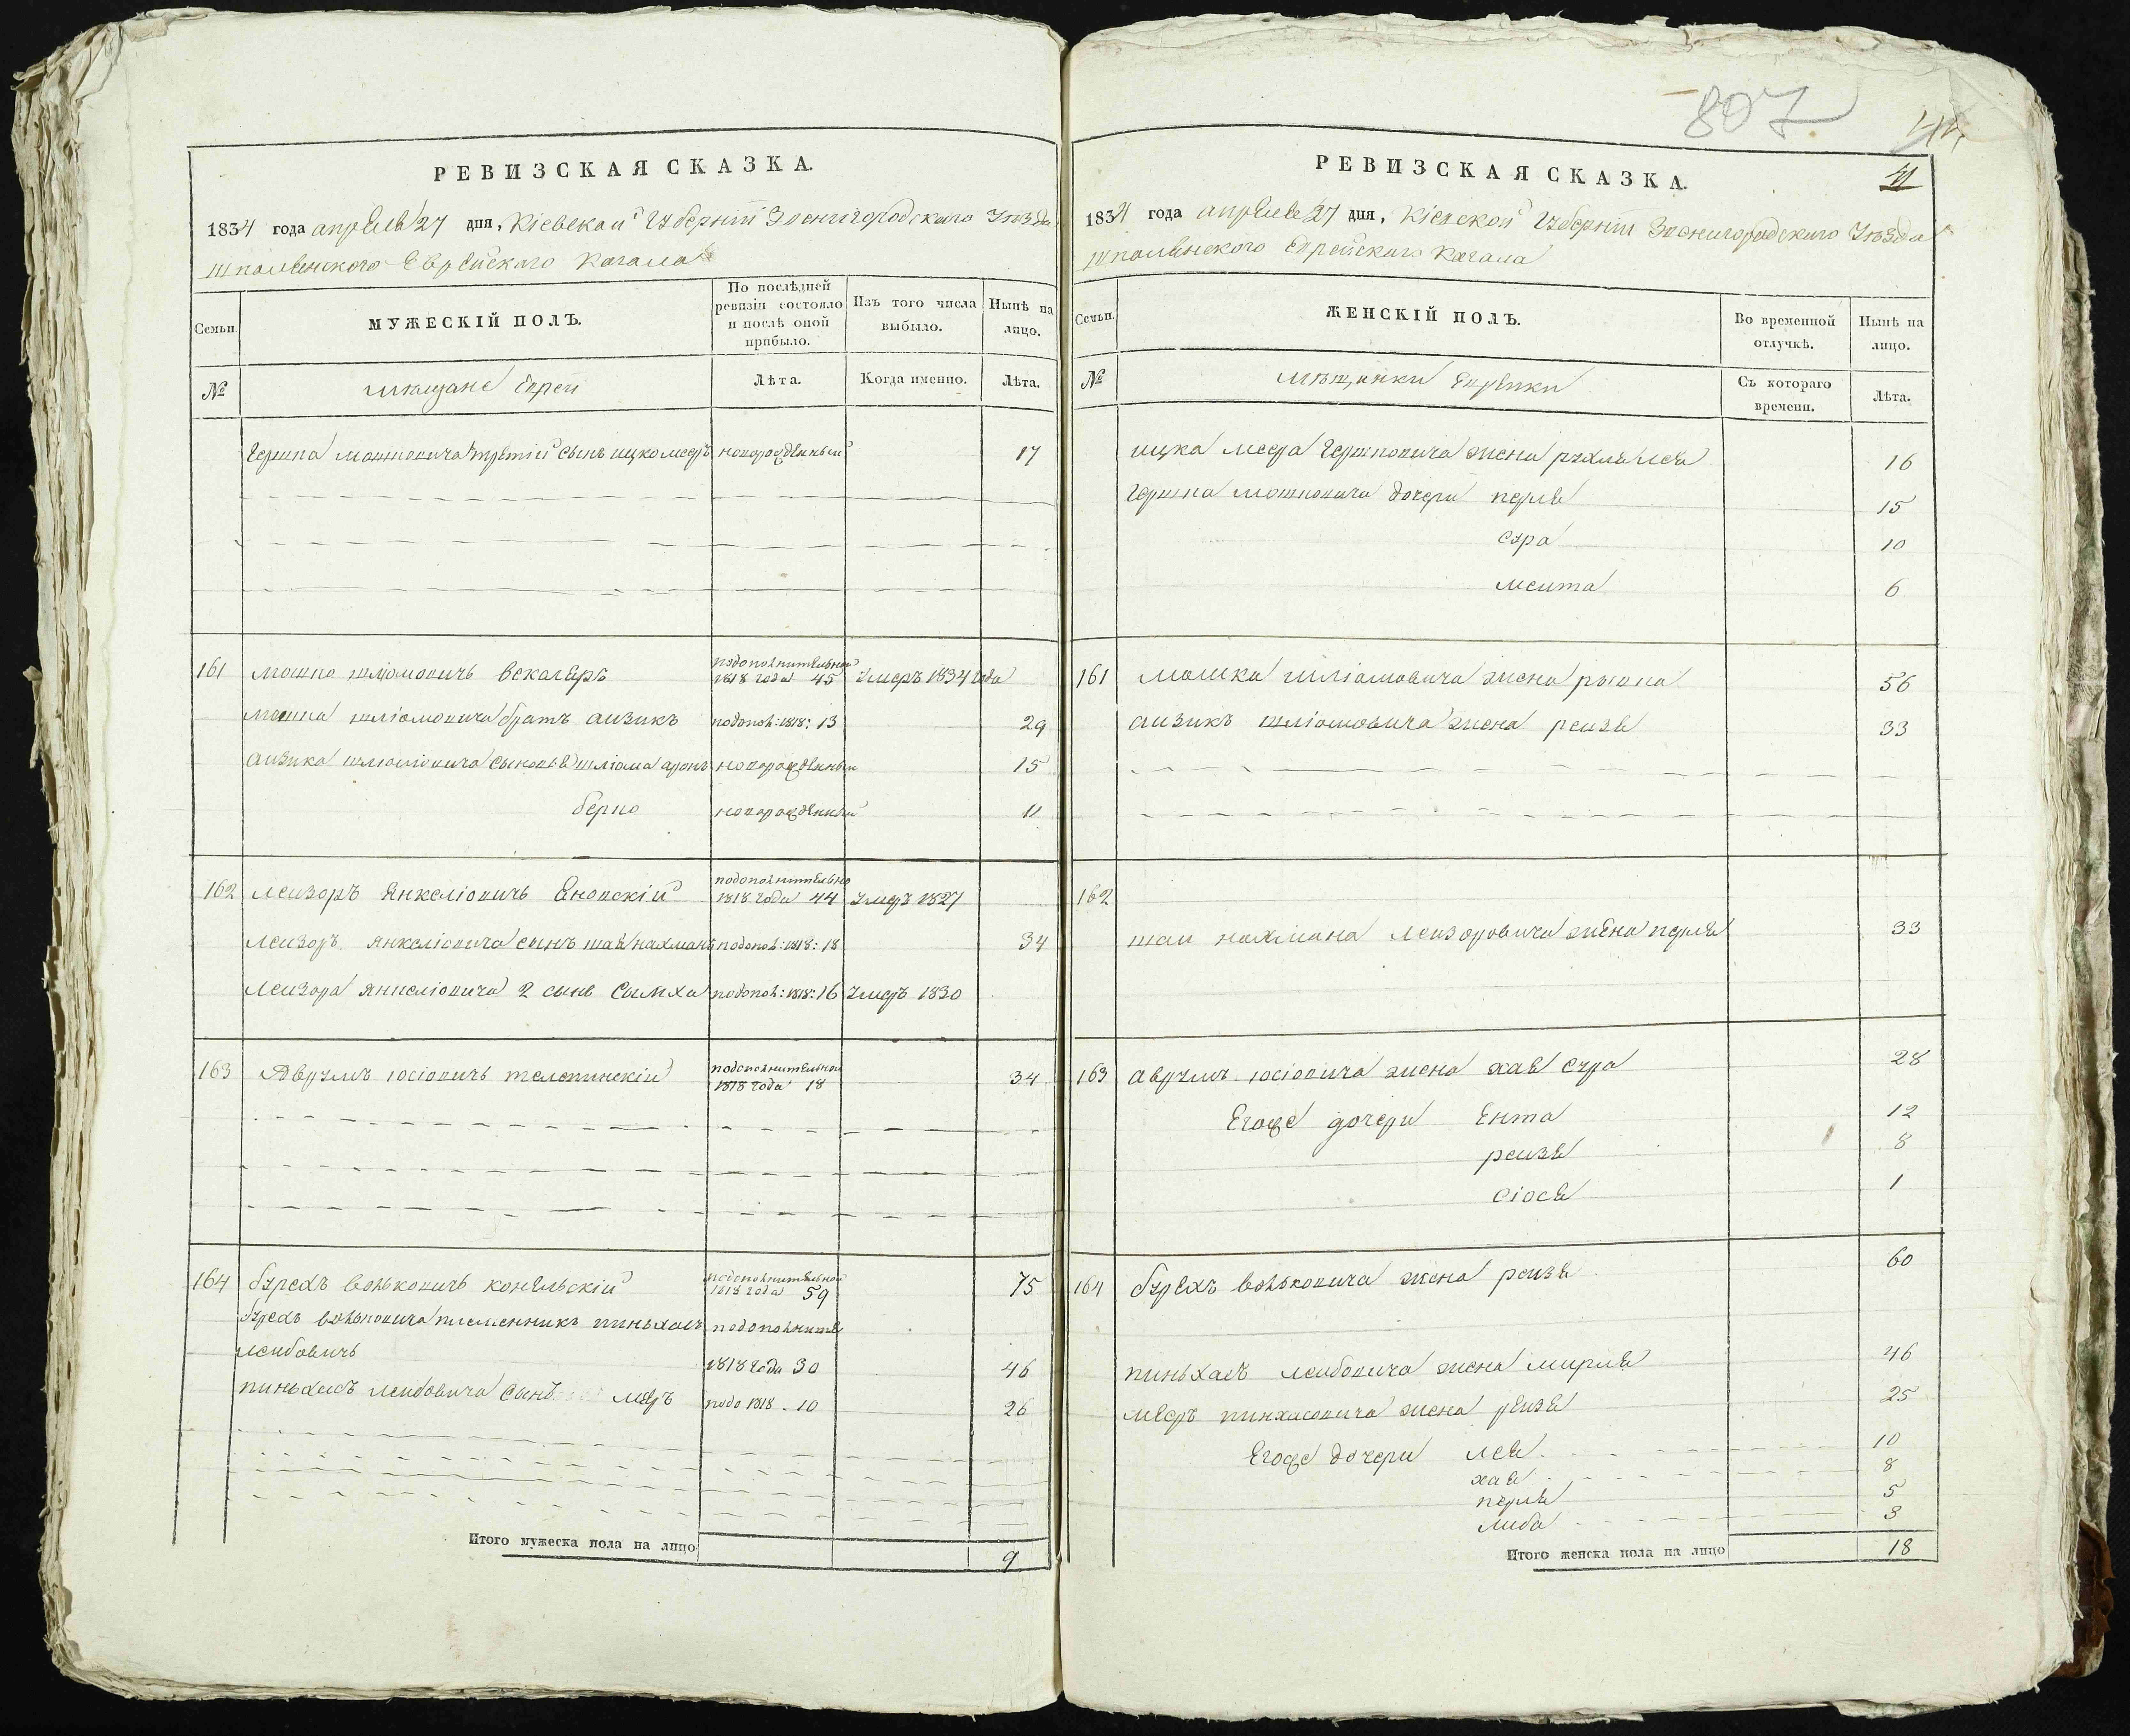 РЕВИЗСКАЯ СКАЗКА.
1834 года апреля 27 дня, Кіевской Губерніи Звенигородского Уѣзда
шполянского Еврейскаго Кагала
Семьи.
МУЖЕСКІЙ ПОЛЪ.
По послѣдней ревизіи состояло и послѣ оной прибыло.
Изъ того числа выбыло.
Нынѣ на лицо.
№
мѣщане Евреи
Лѣта.
Когда именно.
Лѣта.
Гершка мошковича третій сынъ ицко меер новорожденный 17
161 мошко шліомовичъ подополнительной 1818 года 45 Умеръ 1834 года
мошка шліомовича братъ аизикъ подопол: 1818: 13 29
аизика шліомовича сыновья шліома аронъ новорожденный 15
берко новорожденный 11
162 леизоръ янкеліовичъ подополнительно 1818 года 44 Умеръ 1827
леизоръ янкеліовича сынъ шая нахманъ подопол: 1818: 18 34
леизора янкеліовича 2 сынъ Сымха подопол: 1818: 16 Умеръ 1830
163 Аврумъ іосіовичъ телепинскій подополнительной 1818 года 18 34
164 бурехъ вольковичъ конельскій подополнительной 1818 года 59 75
бурехъ вольковича племенникъ пиньхасъ подополните
леибовичъ 1818 года 30 46
пиньхасъ леибовича сынъ меер подо 1818 - 10 26
Итого мужеска пола на лицо 9
807
41
РЕВИЗСКАЯ СКАЗКА.
1834 года апреля 27 дня, Кіевской Губерніи Звенигородскаго Уѣзда
шполянского Еврейскаго Кагала
Семьи.
ЖЕНСКІЙ ПОЛЪ.
Во временной отлучкѣ.
Нынѣ на лицо.
№
мѣщанки Еврейки
Съ котораго времени.
Лѣта.
ицка меера Гершковича жена рухля лея 16
Гершка мошковича дочери перля 15
сура 10
меита 6
161 мошка шліомовича жена рывка 56
аизикъ шліомовича жена реизя 33
162
шаи нахмана леизоровича жена перля 33
163 аврумъ іосіовича жена хая сура 28
Егоже дочери Ента 12
реизя 8
сіося 1
164 бурехъ вольковича жена реизя 60
пиньхасъ леибовича жена мирля 46
меер пинхасовича жена реизя 25
Егоже дочери лея 10
хая 8
перля 5
либа 3
Итого женска пола на лицо 18